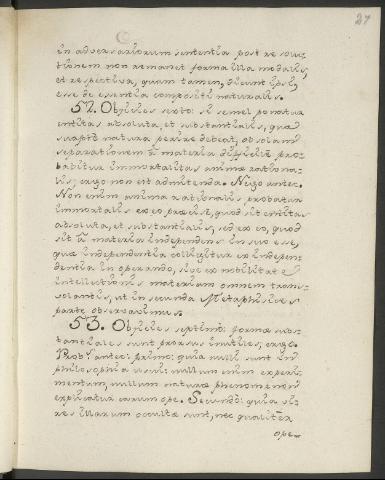 27
in adversariorum sententia post resolu-
tionem non remanet forma illa modalis,
et respectiva, quam tamen, dicunt ipsi,
esse de essentia compositi naturalis.
52. Objicies sexto: si semel ponatur
entitas absoluta, et substantialis, quæ
suapte natura perire debeat, ob solam
separationem a materia difficile pro-
babitur immortalitas animæ rationa-
lis; ergo non est admittenda. Nego antec.
Non enim anima rationalis probatur
immortalis ex eo præcise, quod sit entitas
absoluta, et substantialis, sed ex eo, quod
sit a materia independens in suo esse,
quæ independentia colligitur ex indepen-
dentia in operando, sive ex nobilitate
intellectionis materiam omnem trans-
volantis, ut in secunda Metaphysices
parte observavimus.
53. Objicies septimo: formæ subs-
tantiales sunt prorsus inutiles; ergo.
Prob. antec. primo: quia nulli sunt in
philosophia usui: nullum enim experi-
mentum, nullum naturæ phenomenon
explicatur earum ope. Secundo: quia vi-
res illarum occultæ sunt, nec qualiter
ope-